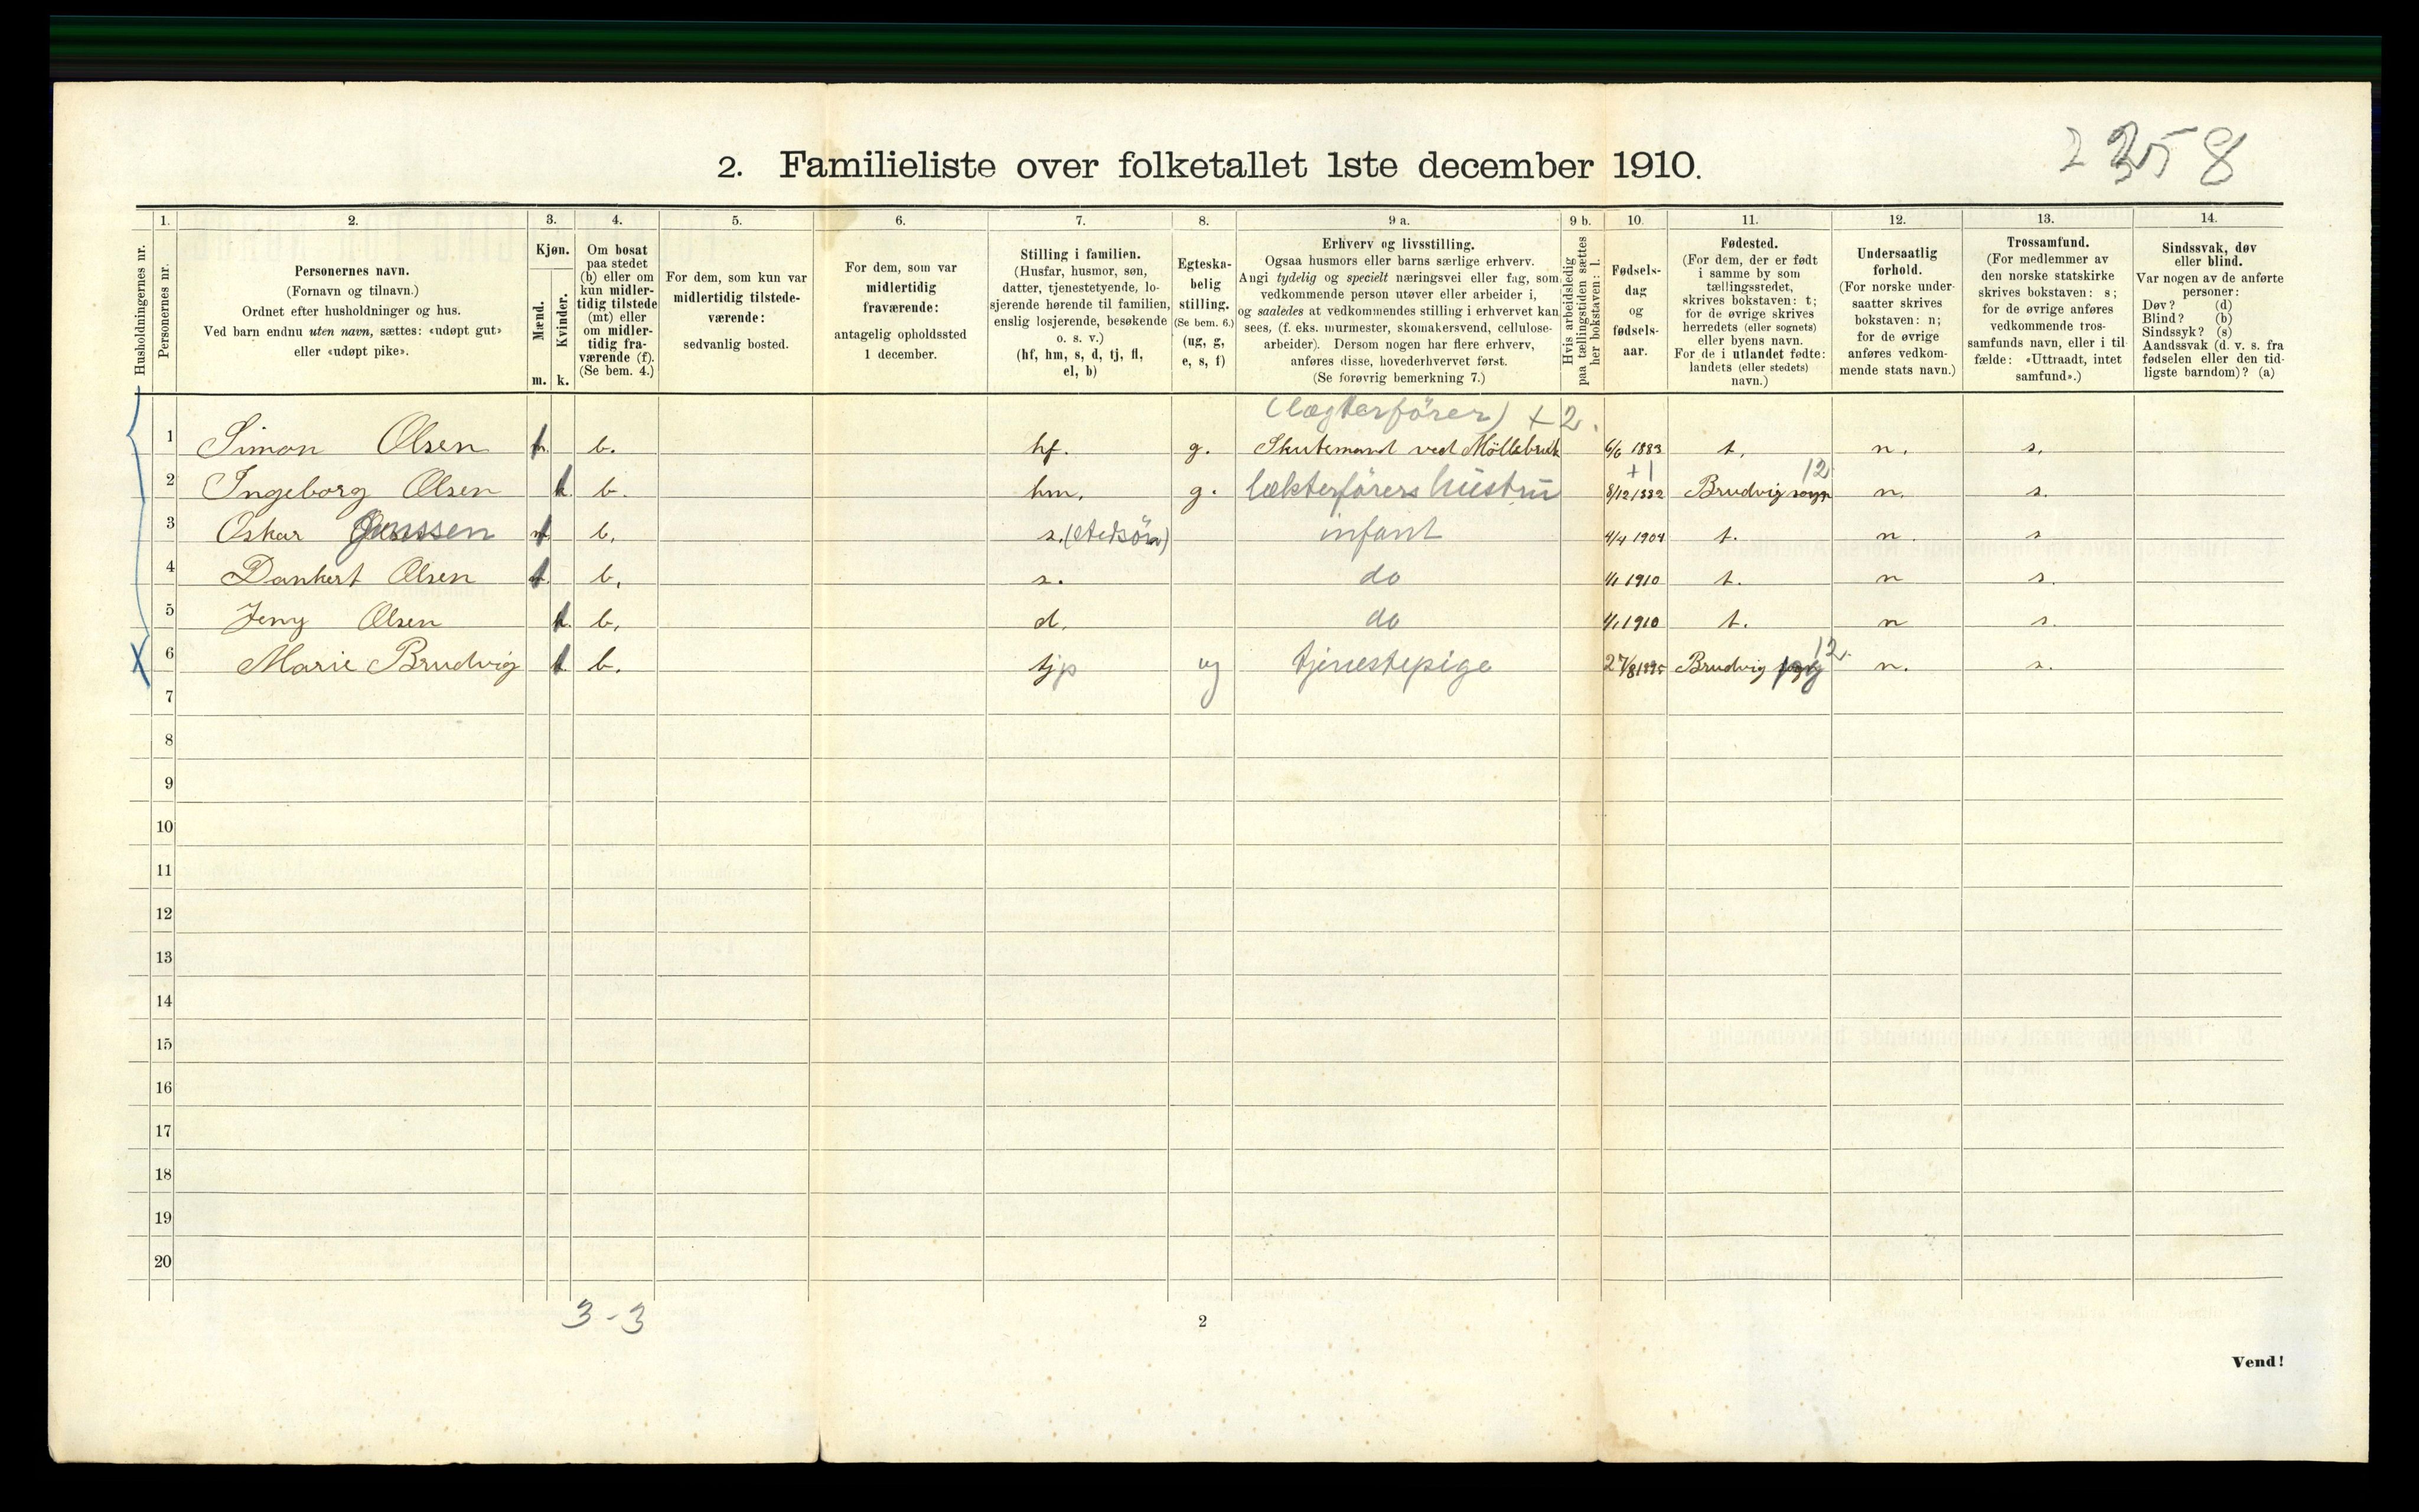 2358
2. Familieliste over folketallet 1ste december 1910.
1. 2. 3. 4. 5. 6. 7. 8. 9 a. 9 b. 10. 11. 12. 13. 14.
Husholdningernes nr.
Personernes nr.
Personernes navn.
(Fornavn og tilnavn.)
Ordnet efter husholdninger og hus.
Ved barn endnu uten navn, sættes: «udøpt gut»
eller «udøpt pike».
Kjøn.
Mænd.
Kvinder.
m. k.
Om bosat
paa stedet
(b) eller om
kun midler-
tidig tilstede
(mt) eller
om midler-
tidig fra-
værende (f).
(Se bem. 4.)
For dem, som kun var
midlertidig tilstede-
værende:
sedvanlig bosted.
For dem, som var
midlertidig
fraværende:
antagelig opholdssted
1 december.
Stilling i familien.
(Husfar, husmor, søn,
datter, tjenestetyende, lo-
sjerende hørende til familien,
enslig losjerende, besøkende
o. s. v.)
(hf, hm, s, d, tj, fl,
el, b)
Egteska-
belig
stilling.
(Se bem. 6.)
(ug, g,
e, s, f)
Erhverv og livsstilling.
Ogsaa husmors eller barns særlige erhverv.
Angi tydelig og specielt næringsvei eller fag, som
vedkommende person utøver eller arbeider i,
og saaledes at vedkommendes stilling i erhvervet kan
sees, (f. eks. murmester, skomakersvend, cellulose-
arbeider). Dersom nogen har flere erhverv,
anføres disse, hovederhvervet først.
(Se forøvrig bemerkning 7.)
Hvis arbeidsledig
paa tællingstiden sættes
her bokstaven: l.
Fødsels-
dag
og
fødsels-
aar.
Fødested.
(For dem, der er født
i samme by som
tællingsstedet,
skrives bokstaven: t;
for de øvrige skrives
herredets (eller sognets)
eller byens navn.
For de i utlandet fødte:
landets (eller stedets)
navn.)
Undersaatlig
forhold.
(For norske under-
saatter skrives
bokstaven: n;
for de øvrige
anføres vedkom-
mende stats navn.)
Trossamfund.
(For medlemmer av
den norske statskirke
skrives bokstaven: s;
for de øvrige anføres
vedkommende tros-
samfunds navn, eller i til-
fælde: «Uttraadt, intet
samfund».)
Sindssvak, døv
eller blind.
Var nogen av de anførte
personer:
Døv? (d)
Blind? (b)
Sindssyk? (s)
Aandssvak (d. v. s. fra
fødselen eller den tid-
ligste barndom)? (a)
(lægterförer) +2.
1 Simon Olsen b. hf. g. Skutemand ved Möllebruk 6/6 1883 t. n. s.
+1 12
2 Ingeborg Olsen k. b. hm. g. lækterförers hustru 8/12 1882 Brudvig sogn n. s.
3 Oskar b. s. (stedsön) infant 4/4 1904 t. n. s
4 Dankert Olsen b. s. do 4/1 1910 t. n s.
5 Jeny Olsen k. b. d. do 4/1 1910 t. n s.
12.
6 Marie Brudvig k b. tjp ug tjenestepige Brudvig n. s.
7
8
9
10
11
12
13
14
15
16
17
18
19
20
3-3
2
Vend!